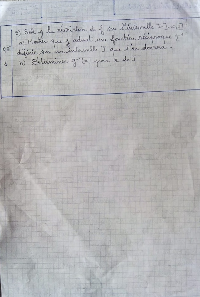 3) Soit g la restriction de f sur l'intervalle
a) Montrer que g admet une fonction réciproque g⁻¹
définie sur un intervalle J que l'on
b) Déterminer g⁻¹(x) pour x de J